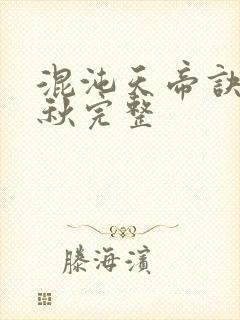 混沌天帝诀
秋完整
滕海滨